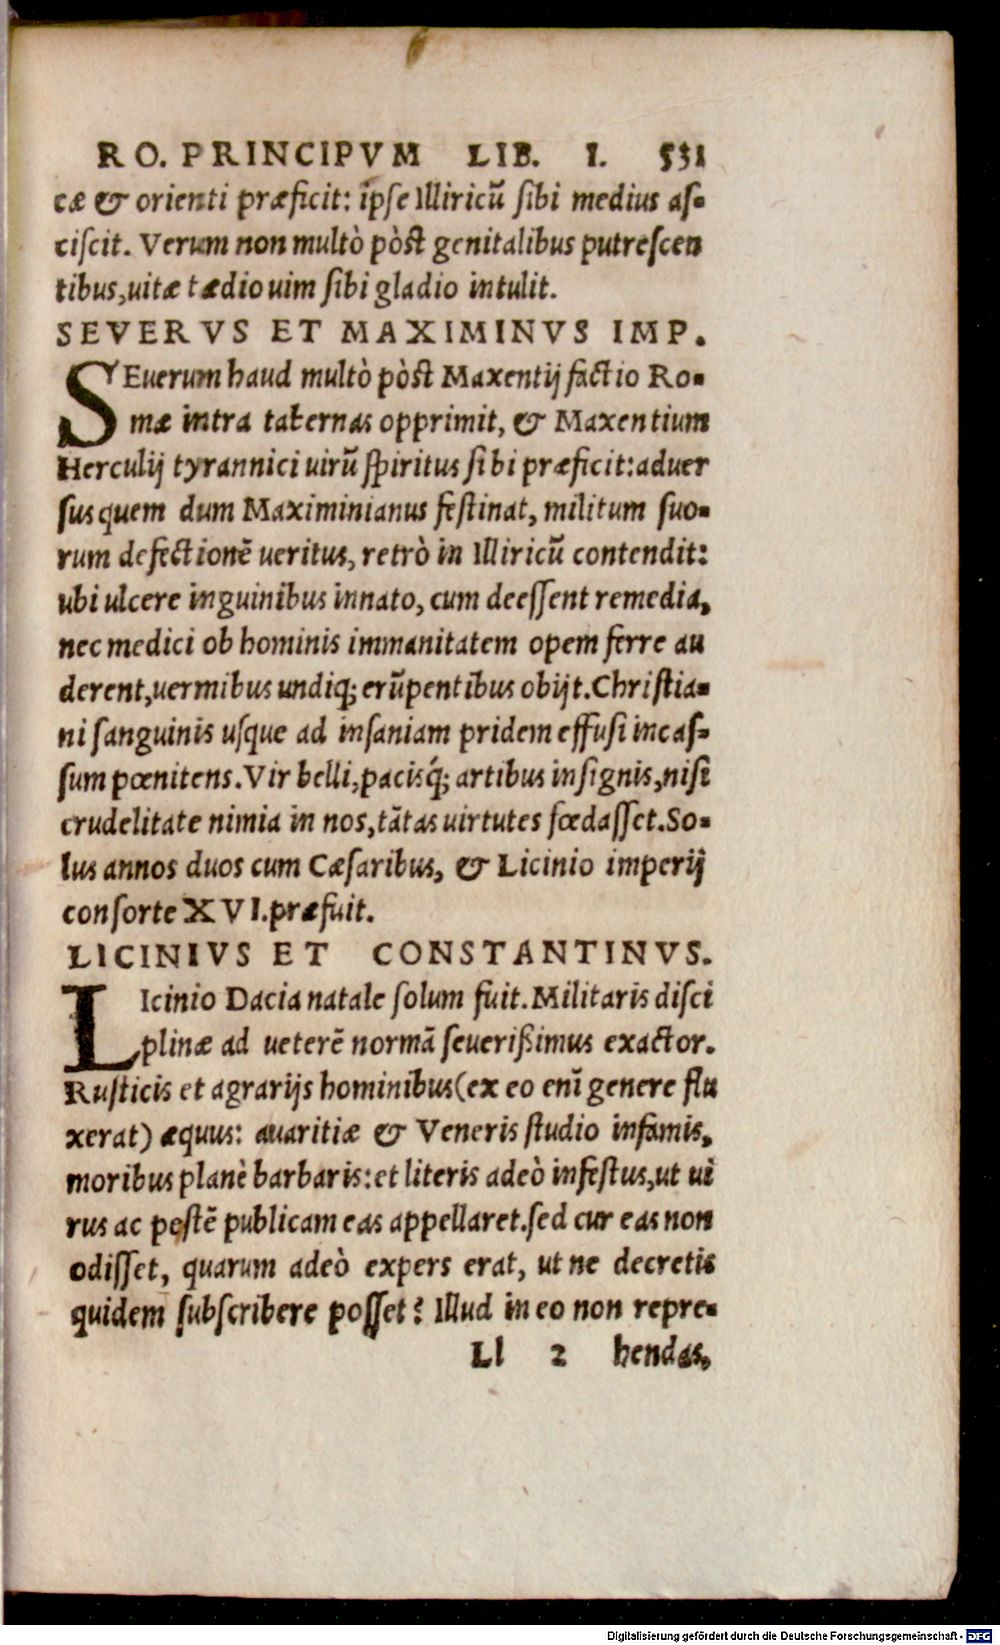 RO. PRINCIPVM LIB. I. 531
cæ & orienti præficit: ipse Illiricū sibi medius as-
ciscit. Verum non multò pòst genitalibus putrescen
tibus,uitæ tædio uim sibi gladio intulit.
SEVERVS ET MAXIMINVS IMP.
SEuerum haud multò pòst Maxentij factio Ro-
mæ intra tabernas opprimit, & Maxentium
Herculij tyrannici uirū spiritus sibi præficit:aduer
sus quem dum Maximinianus festinat, militum suo-
rum defectionē ueritus, retrò in Illiricū contendit:
ubi ulcere inguinibus innato, cum deessent remedia,
nec medici ob hominis immanitatem opem ferre au
derent,uermibus undiq; erūpentibus obijt.Christia-
ni sanguinis usque ad insaniam pridem effusi incas-
sum pœnitens.Vir belli,pacisq́; artibus insignis,nisi
crudelitate nimia in nos,tātas uirtutes fœdasset.So-
lus annos duos cum Cæsaribus, & Licinio imperij
consorte XVI.præfuit.
LICINIVS ET CONSTANTINVS.
LIcinio Dacia natale solum fuit.Militaris disci
plinæ ad veterē normā seuerißimus exactor.
Rusticis et agrarijs hominibus(ex eo enī genere flu
xerat) æquus: auaritiæ & Veneris studio infamis,
moribus planè barbaris:et literis adeò infestus,ut ui
rus ac pestē publicam eas appellaret.sed cur eas non
odisset, quarum adeò expers erat, ut ne decretis
quidem subscribere posset? Illud in eo non repre-
Ll 2 hendas,
Digitalisierung gefördert durch die Deutsche Forschungsgemeinschaft - DFG